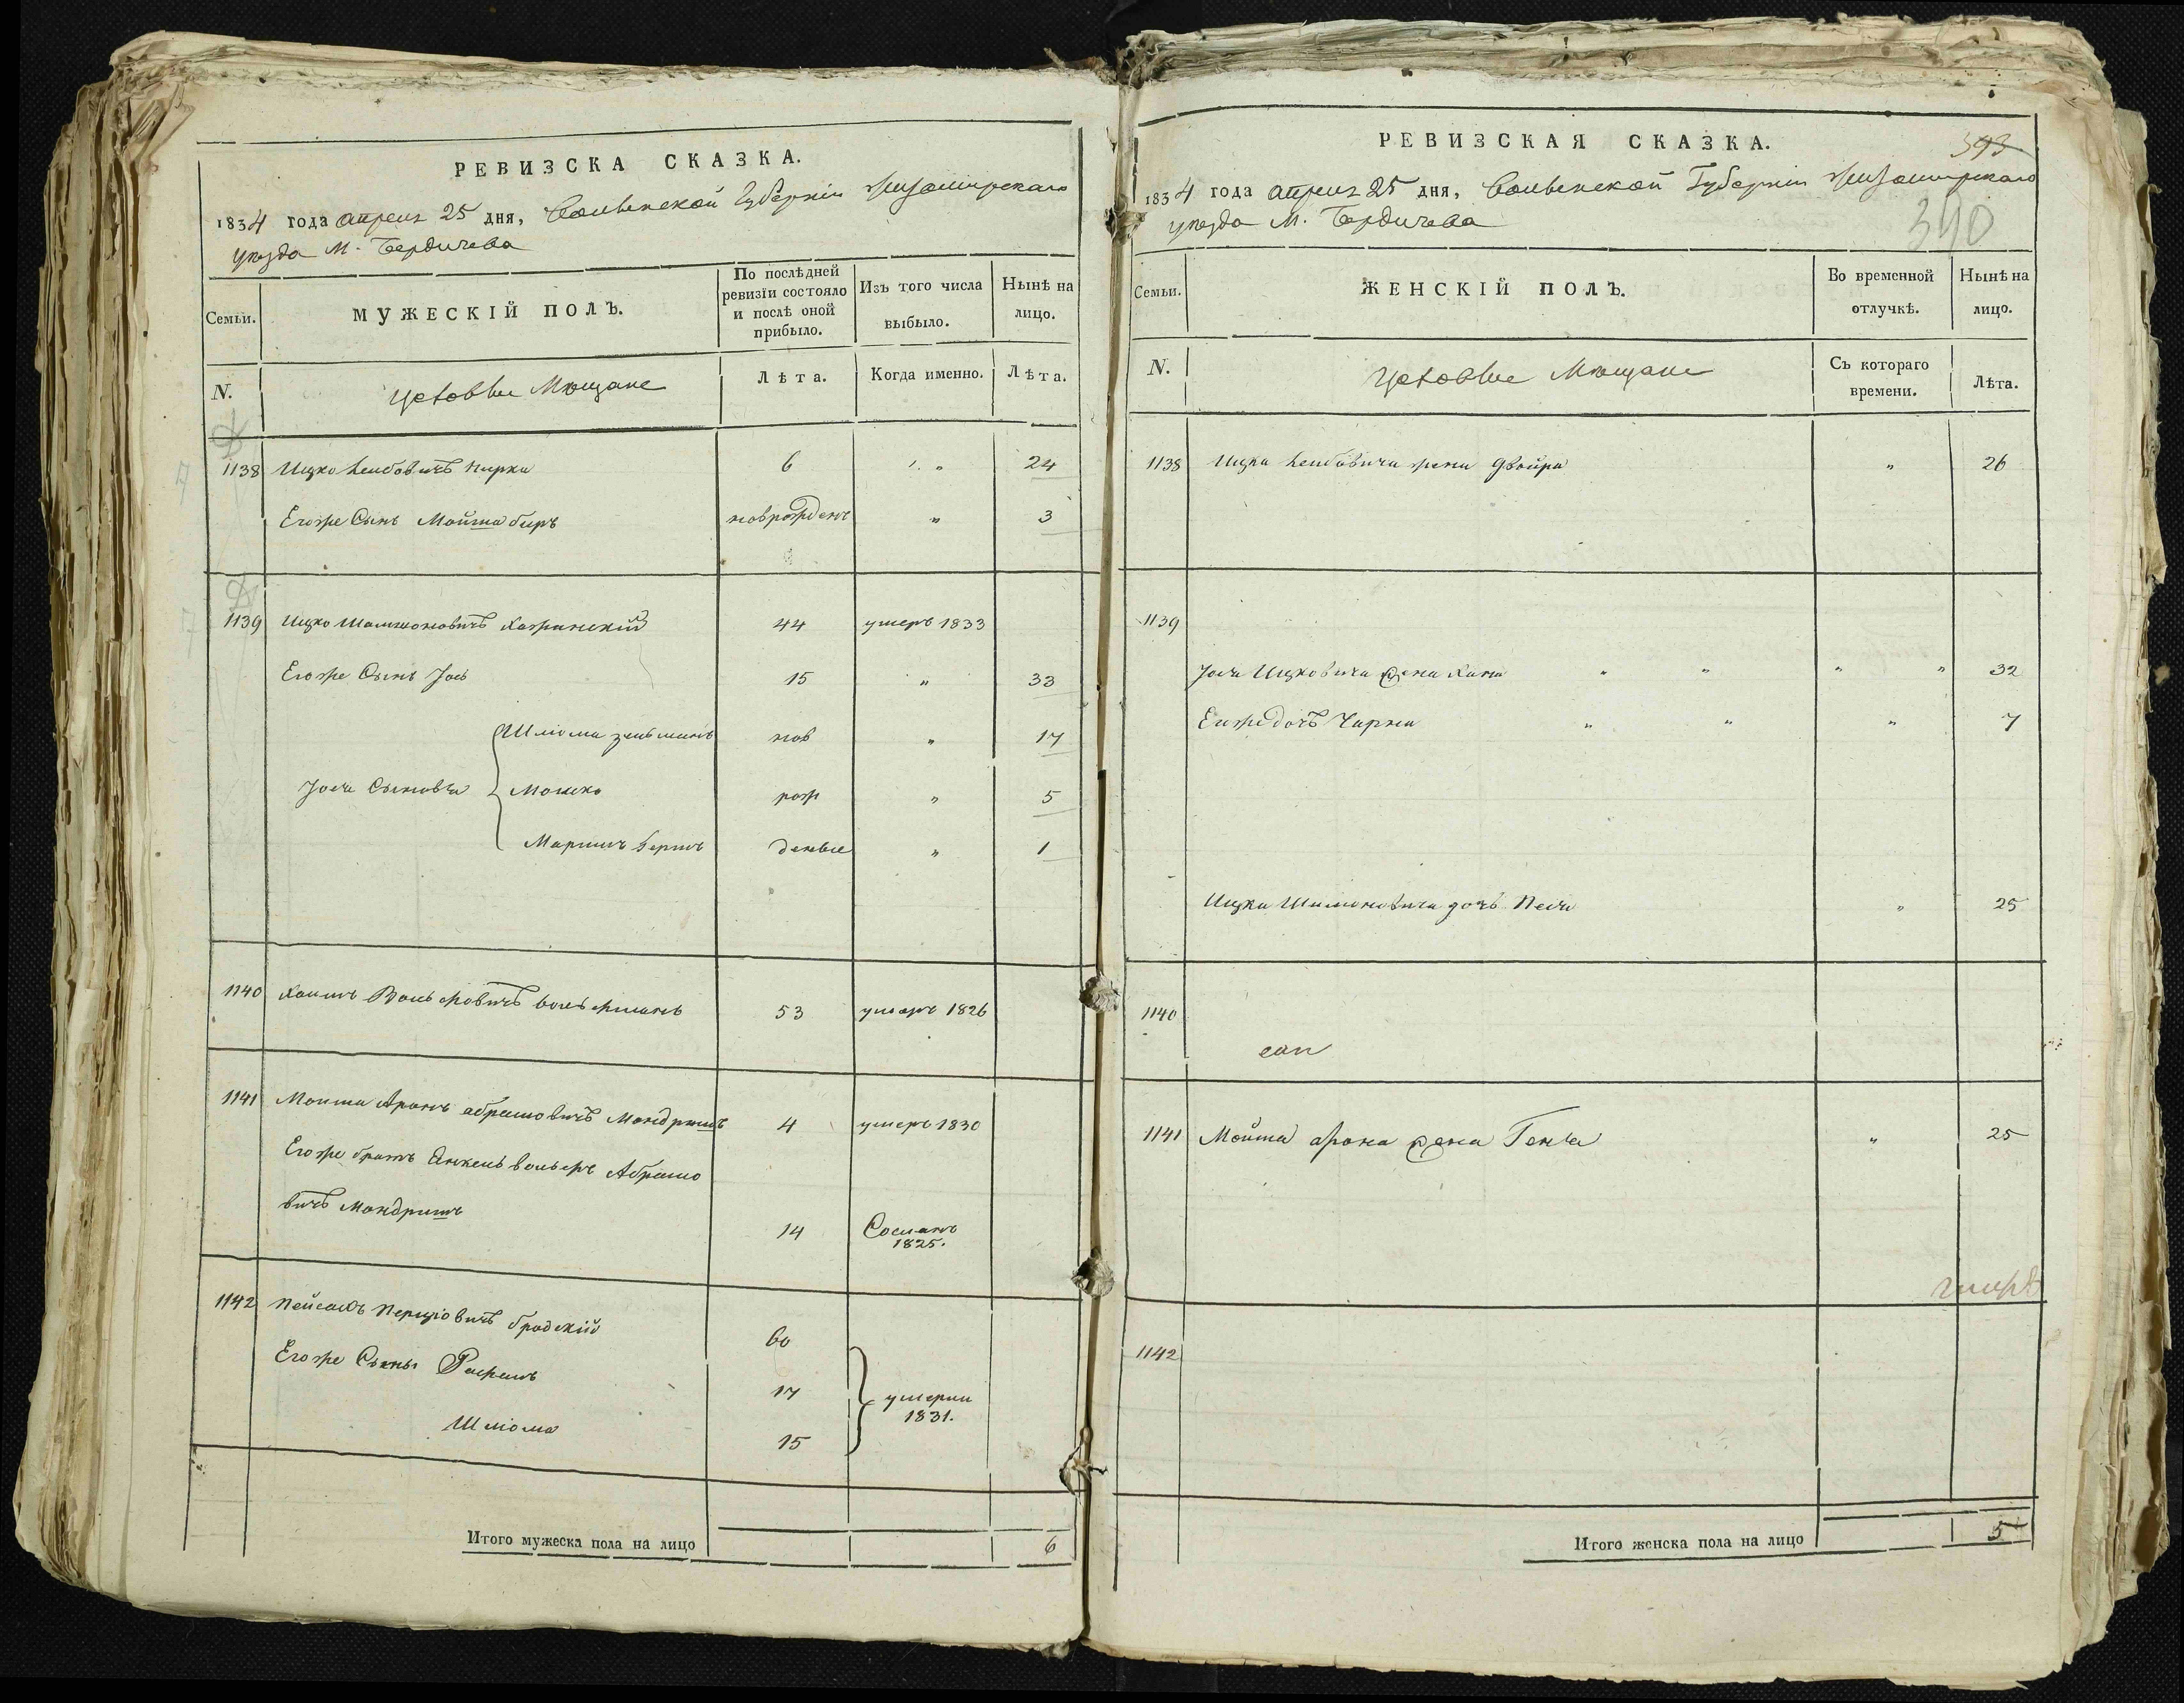 РЕВИЗСКА СКАЗКА.
1834 года апреля 25 дня, Волынской Губерніи Житомирскаго
уезда М. Бердичева
Семьи.
МУЖЕСКІЙ ПОЛЪ.
По послѣдней ревизіи состояло и послѣ оной прибыло.
Изъ того числа выбыло.
Нынѣ на лицо.
N.
Цеховые Мещане
Лѣта.
Когда именно.
Лѣта.
1138 Ицко Лейбовичъ Кирка 6 " 24
Егоже Сынъ Мойша беръ новрожденъ " 3
1139 Ицко Шамшоновичъ 44 умеръ 1833
Егоже Сынъ Іось 15 " 33
Шліома зельманъ нов " 17
Іося Сыновья Мошко рож " 5
Маршчъ Берко деные " 1
1140 Хаимъ Вольфовичъ вольфманъ 53 умеръ 1826
1141 Моиша Аронъ абрамовичъ Мондришъ 4 умеръ 1830
Егоже братъ Янкель вольфъ Абрамо
вичъ Мондришъ 14 Сосланъ
1825.
1142 Пейсахъ Перцовичъ бродскій 60
Егоже Сыны Рафаилъ 17 умерли
1831.
Шліома 15
Итого мужеска пола на лицо 6
РЕВИЗСКАЯ СКАЗКА.
393
1834 года апреля 25 дня, Волынской Губерніи Житомирскаго
уезда М. Бердичева
390
Семьи.
ЖЕНСКІЙ ПОЛЪ.
Во временной отлучкѣ.
Нынѣ на лицо.
N.
Цеховые Мещане
Съ котораго времени.
Лѣта.
1138 Ицка Лейбовича жена Двойра " 26
1139
Іося Ицковича жена Хана " " " " 32
Еижедочъ Чарна " " " 7
Ицка Шимоновича дочь Песя " 25
1140
1141 Мойша арона жена Геня " 25
1142
Итого женска пола на лицо 5